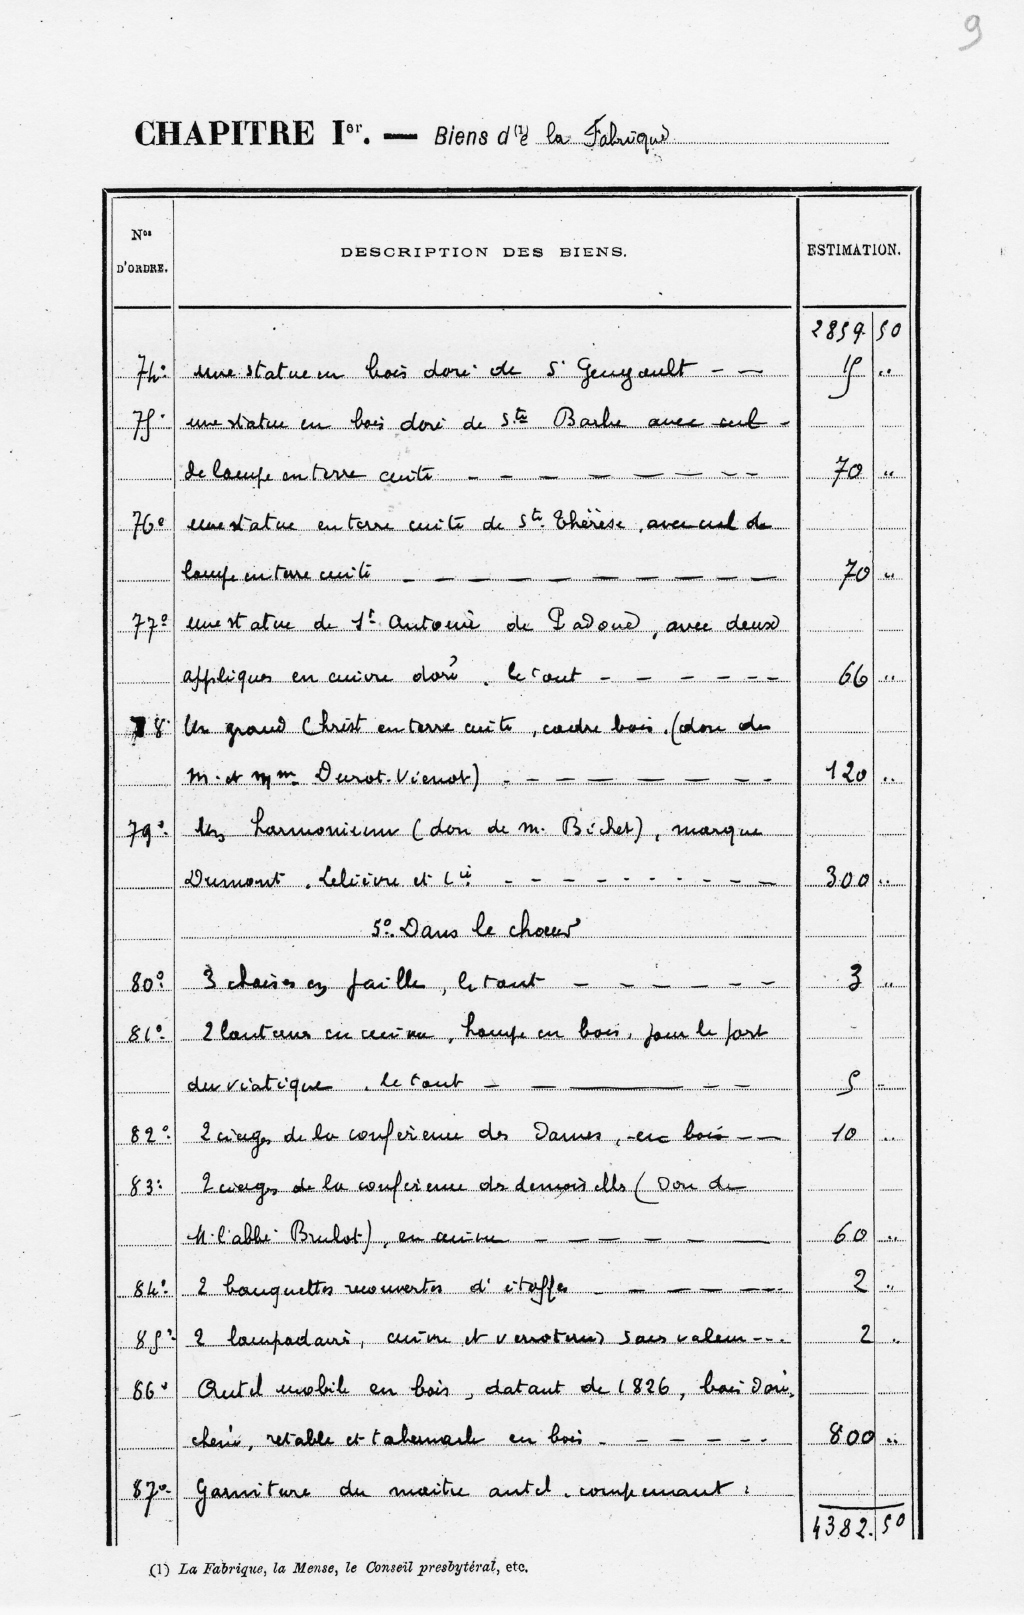 9
CHAPITRE Ier. — Biens d(1)e la Fabrique
Nos D'ORDRE. DESCRIPTION DES BIENS. ESTIMATION.
2859 50
74° une statue en bois doré de St Gengoult - — 15 "
75° une statue en bois doré de Ste Barbe avec cul -
de lampe en terre cuite - - - — — — - - 70 "
76° une statue en terre cuite de Ste Thérèse, avec cul de
lampe en terre cuite — — — — — — — — 70 "
77° une statue de St Antoine de Padoue, avec deux
appliques en cuivre doré, le tout - — - — - - - 66 "
78 Un grand Christ en terre cuite, cadre bois. (don de
M. et Mme Durot-Vienot) - - — — — — - - 120 "
79° Un harmonium (don de M. Bichet), marque
Dumont, Lelièvre et Cie - - - - - - - - — — 300 "
5° Dans le chœur
80° 3 chaises en paille, le tout — - - — — - 3 "
81° 2 lanternes en cuivre, hampe en bois, pour le port
du viatique, le tout — — ——— - - — 5 "
82° 2 cierges de la conférence des Dames, en bois - — 10 "
83° 2 cierges de la conférence des demoiselles (Don de
M. l'abbé Brulot), en cuivre - — — — - — 60 "
84° 2 banquettes recouvertes d'étoffe - — — — — - 2 "
85° 2 lampadaires, cuivre et verroteries sans valeur - - - 2 "
86° Autel mobile en bois, datant de 1826, bois doré,
chêne, retable et tabernacle en bois - - — — - - 800 "
87° Garniture du maître autel, comprenant :
4382. 50
(1) La Fabrique, la Mense, le Conseil presbytéral, etc.